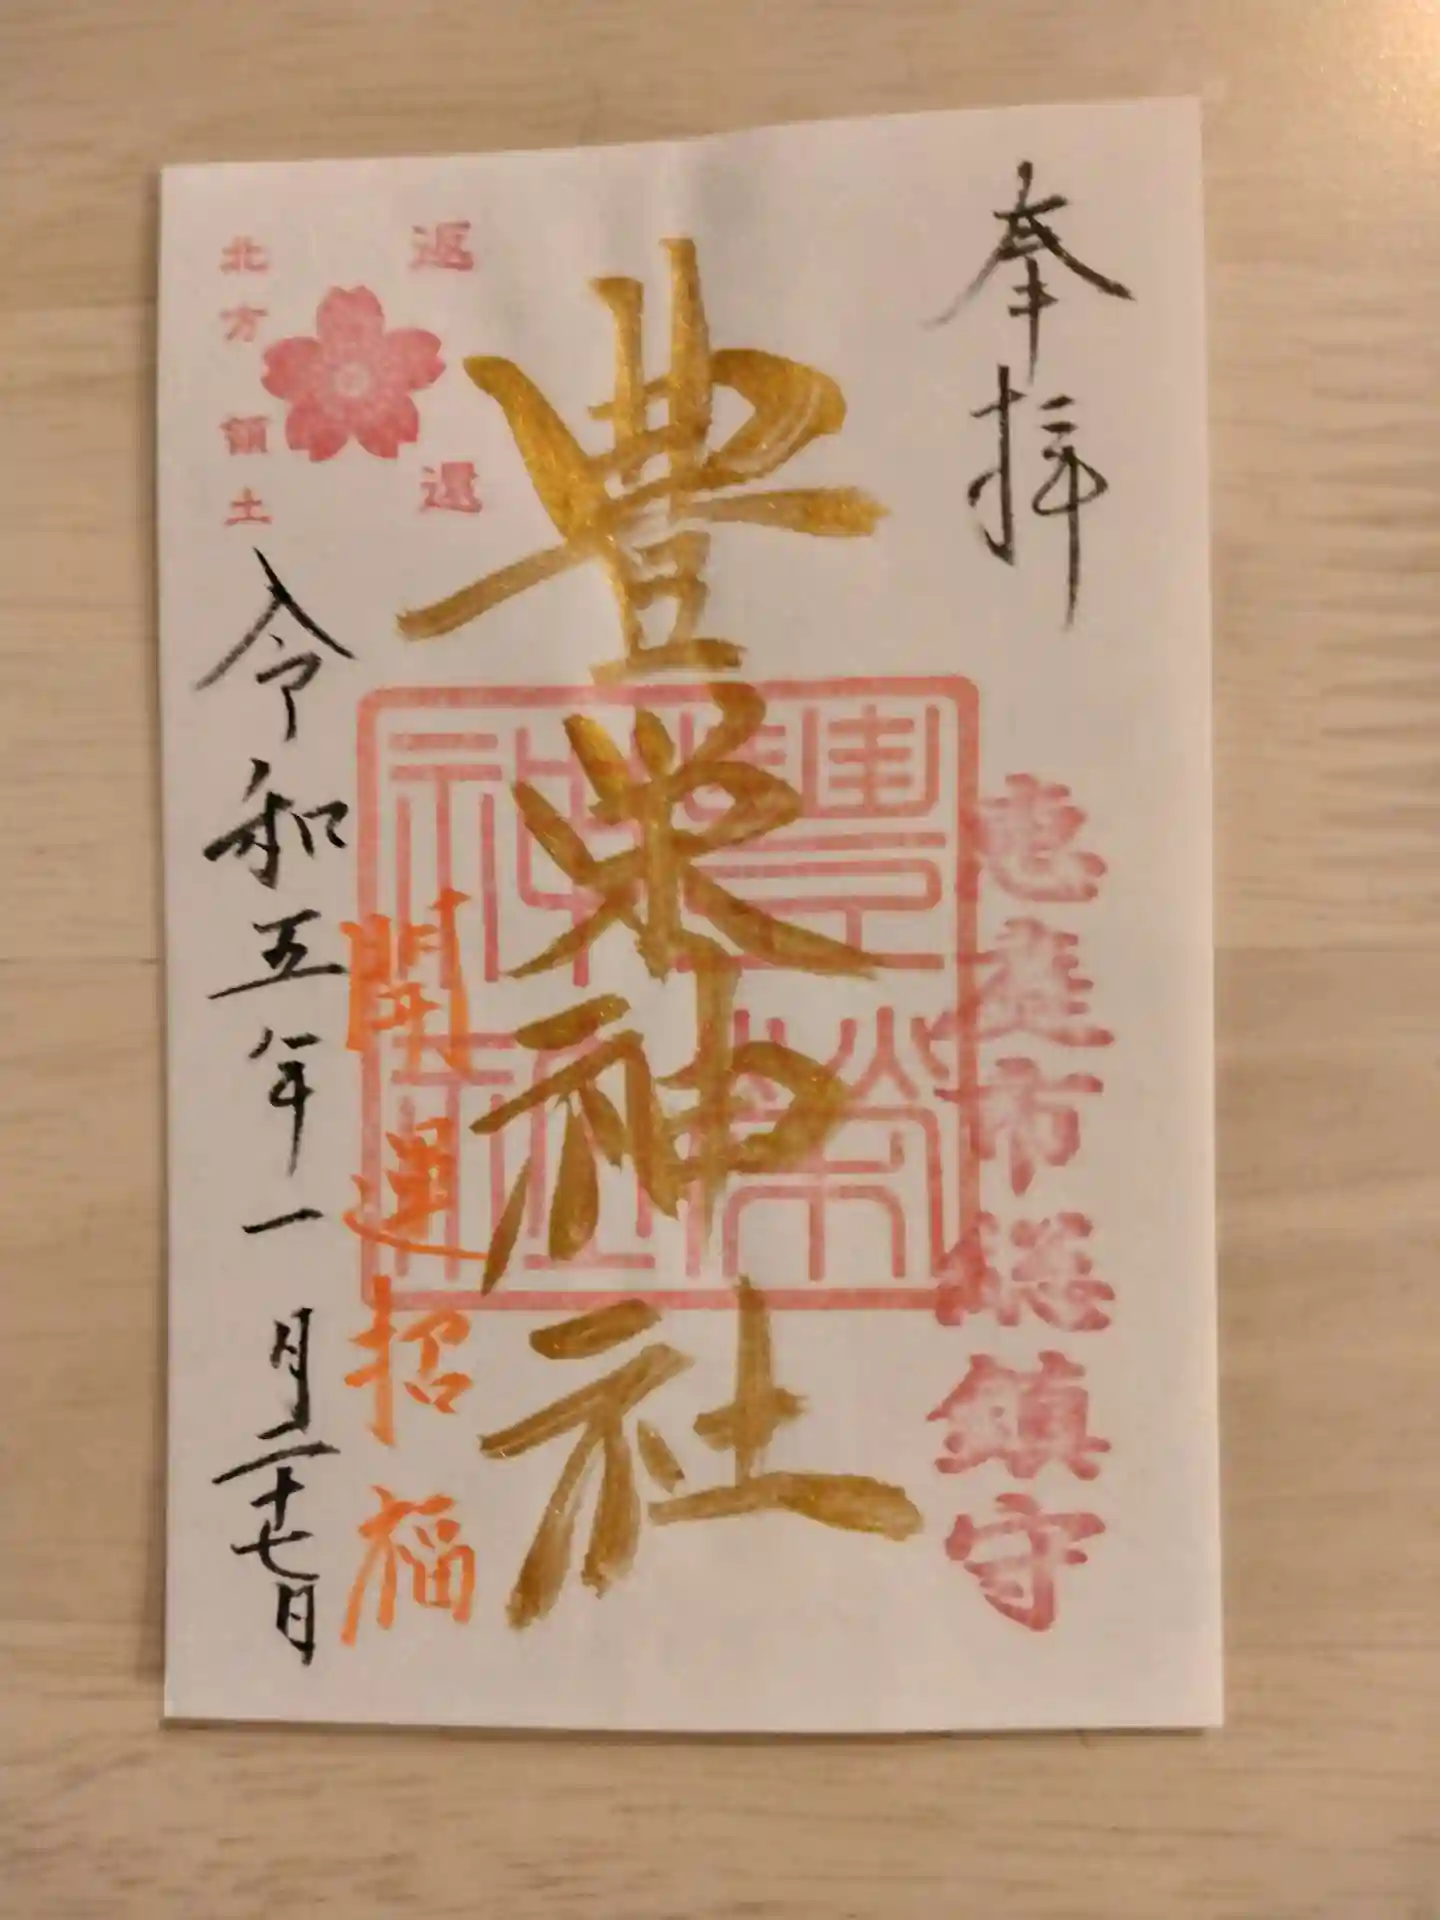 奉拝
恵庭市総鎮守
豊栄神社
豊栄神社
開運招福
返還
北方領土
令和五年一月二十七日